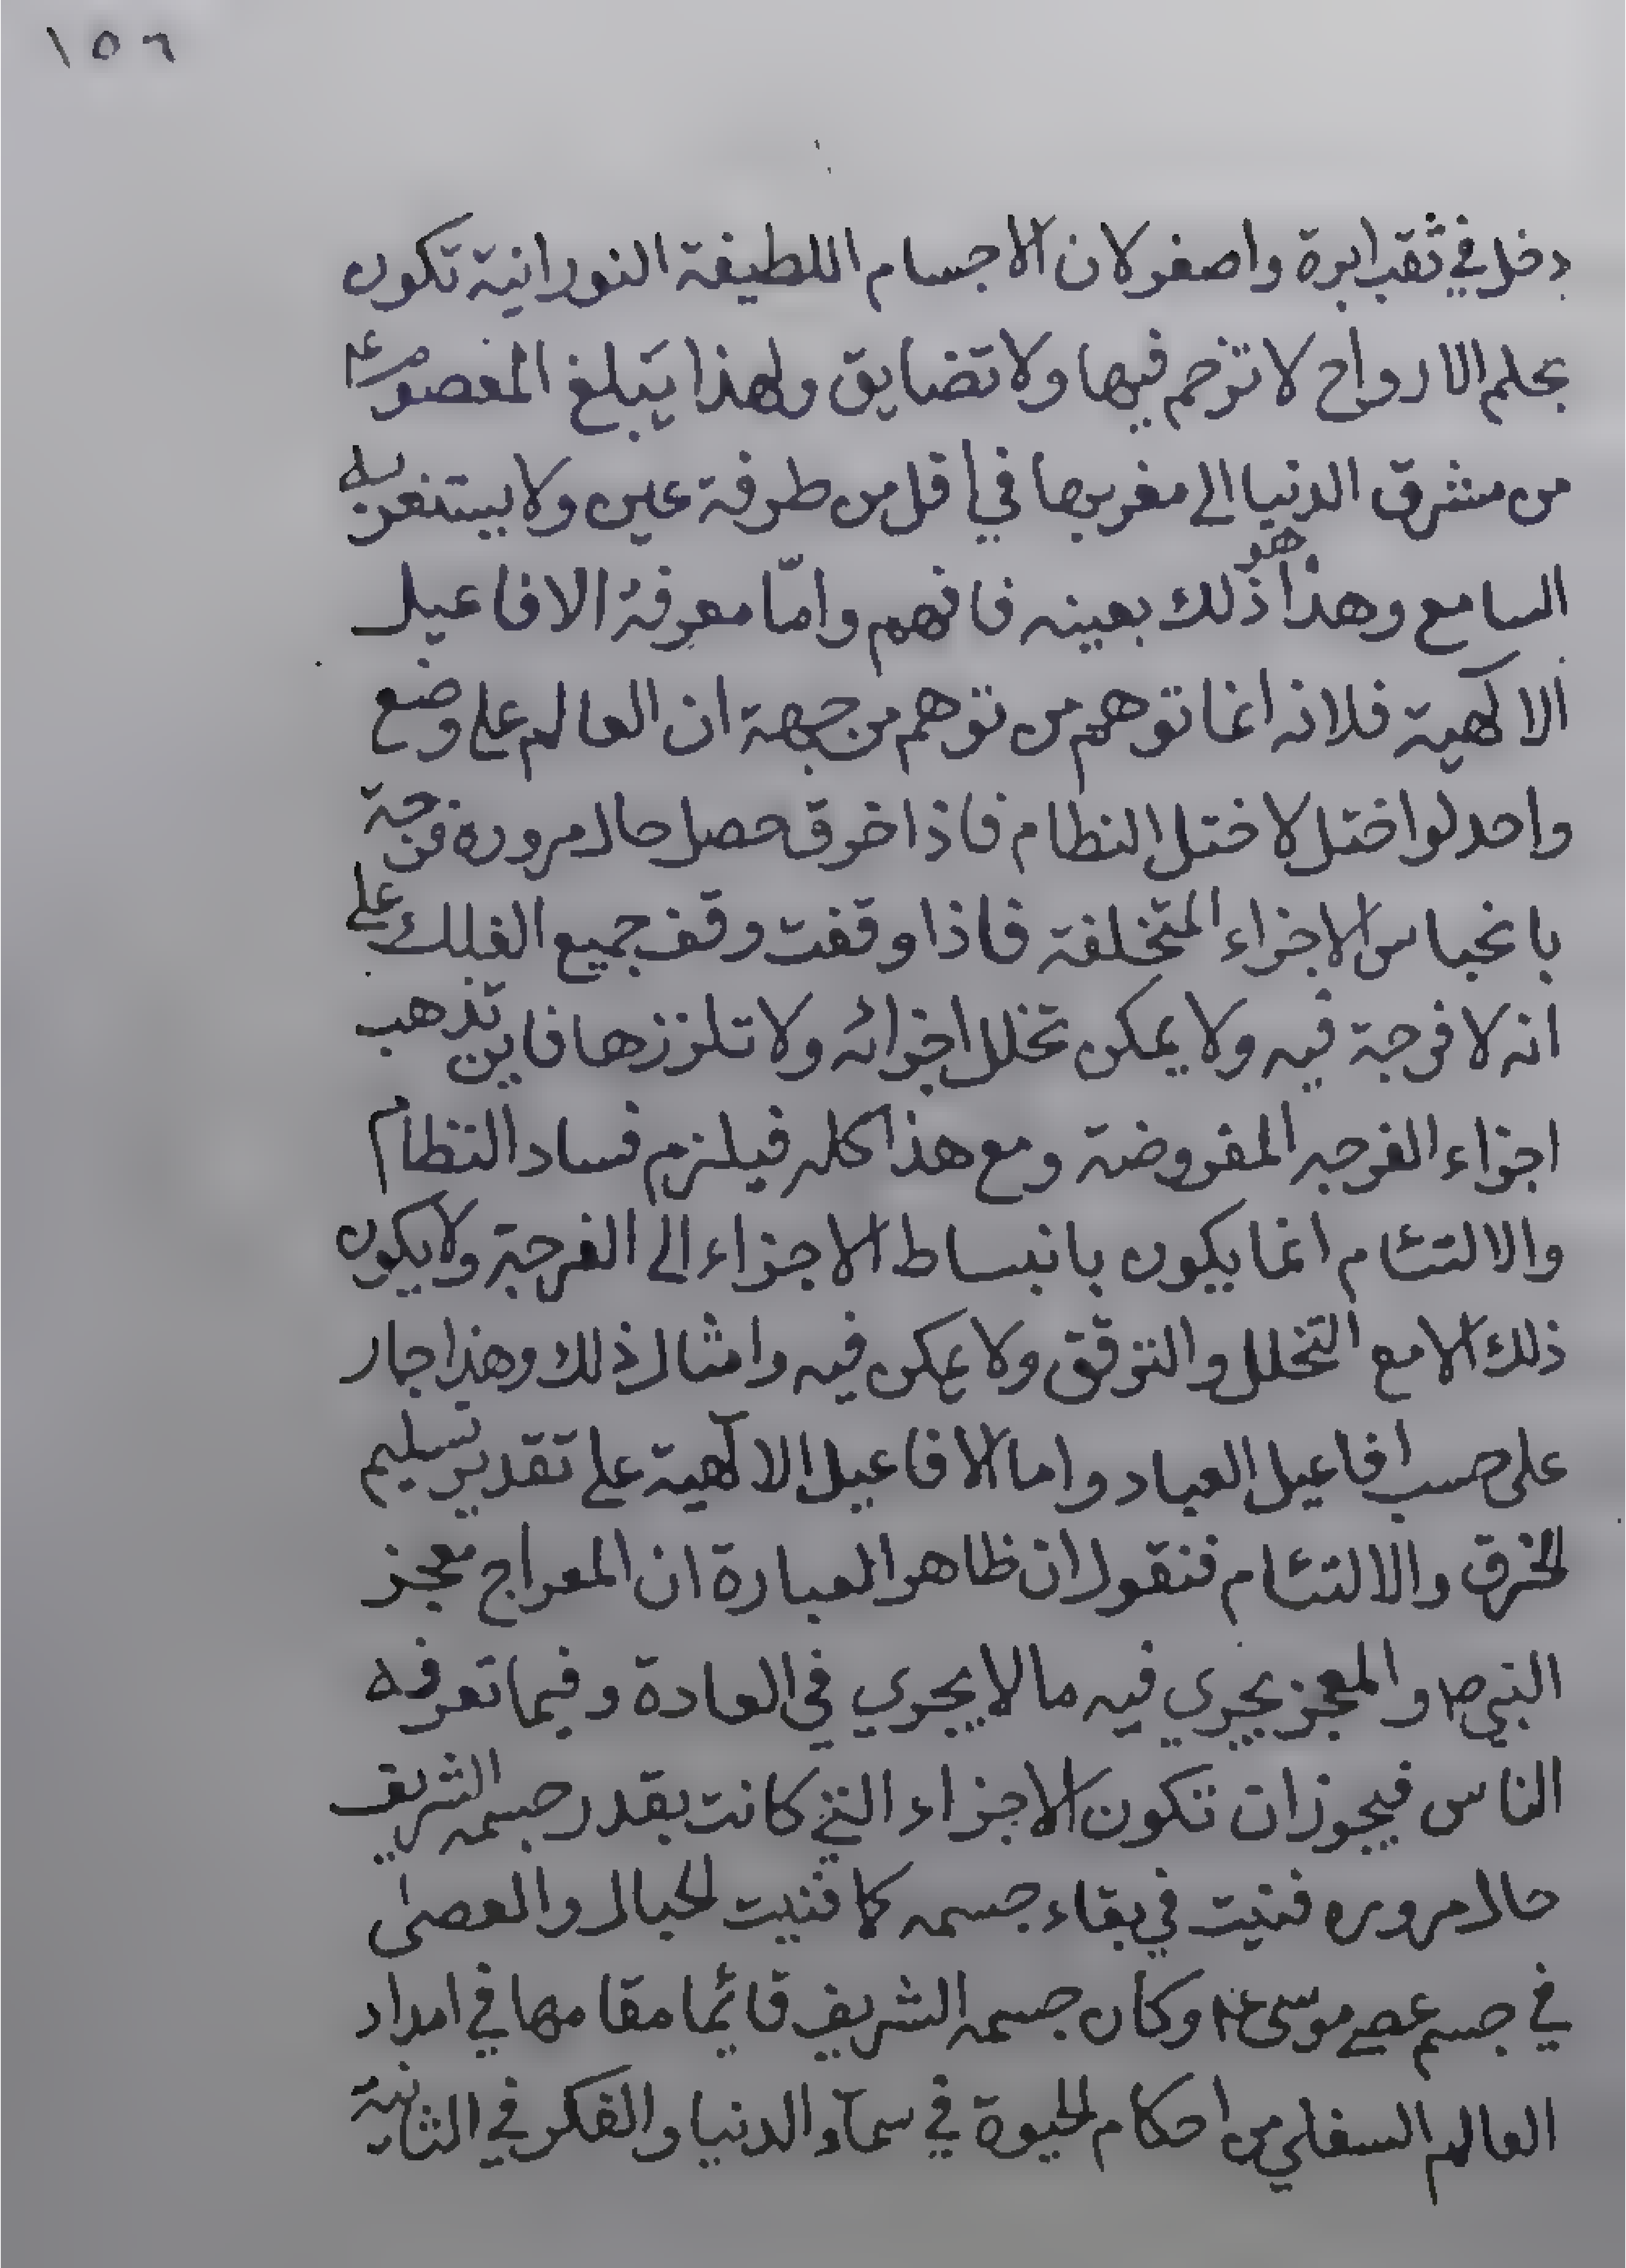 ١٥٦
دخل في ثقب ابرة واصغر لان الاجسام اللطيفة النورانية تكون
بحلم الارواح لا تزحم فيها ولا تضايق ولهذا يبلغ المعصوم ع
من مشرق الدنيا الى مغربها في اقل من طرفة عين ولا يستغربه
السامع وهذا هو ذلك بعينه فافهم وامّا معرفة الافاعيل
الالهية فلانه انما توهم من توهم من جهة ان العالم على وضع
واحد لو اختل لاختل النظام فاذا خرق حصل حال مروره فرجة
بانحباس الاجزاء المتخلفة فاذا وقفت وقف جميع الفلك على
انه لا فرجة فيه ولا يمكن تخلل اجزائه ولا تلززها فاين تذهب
اجزاء الفرجه المفروضة ومع هذا كله فيلزم فساد النظام
والالتئام انما يكون بانبساط الاجزاء الى الفرجة ولا يكون
ذلك الا مع التخلل والترقق ولا يمكن فيه وامثال ذلك وهذا جار
على حسب افاعيل العباد واما الافاعيل الالهية على تقدير تسليم
الخرق والالتئام فنقول ان ظاهر العبارة ان المعراج معجز
النبي ص والمعجز يجري فيه ما لا يجري في العادة وفيما تعرفه
الناس فيجوز ان تكون الاجزاء التي كانت بقدر جسمه الشريف
حال مروره فنيت في بقاء جسمه كما فنيت الحبال والعصى
في جسم عصى موسى ع وكان جسمه الشريف قائما مقامها في امداد
العالم السفلي من احكام الحيوة في سمآء الدنيا والفكر في الثانية